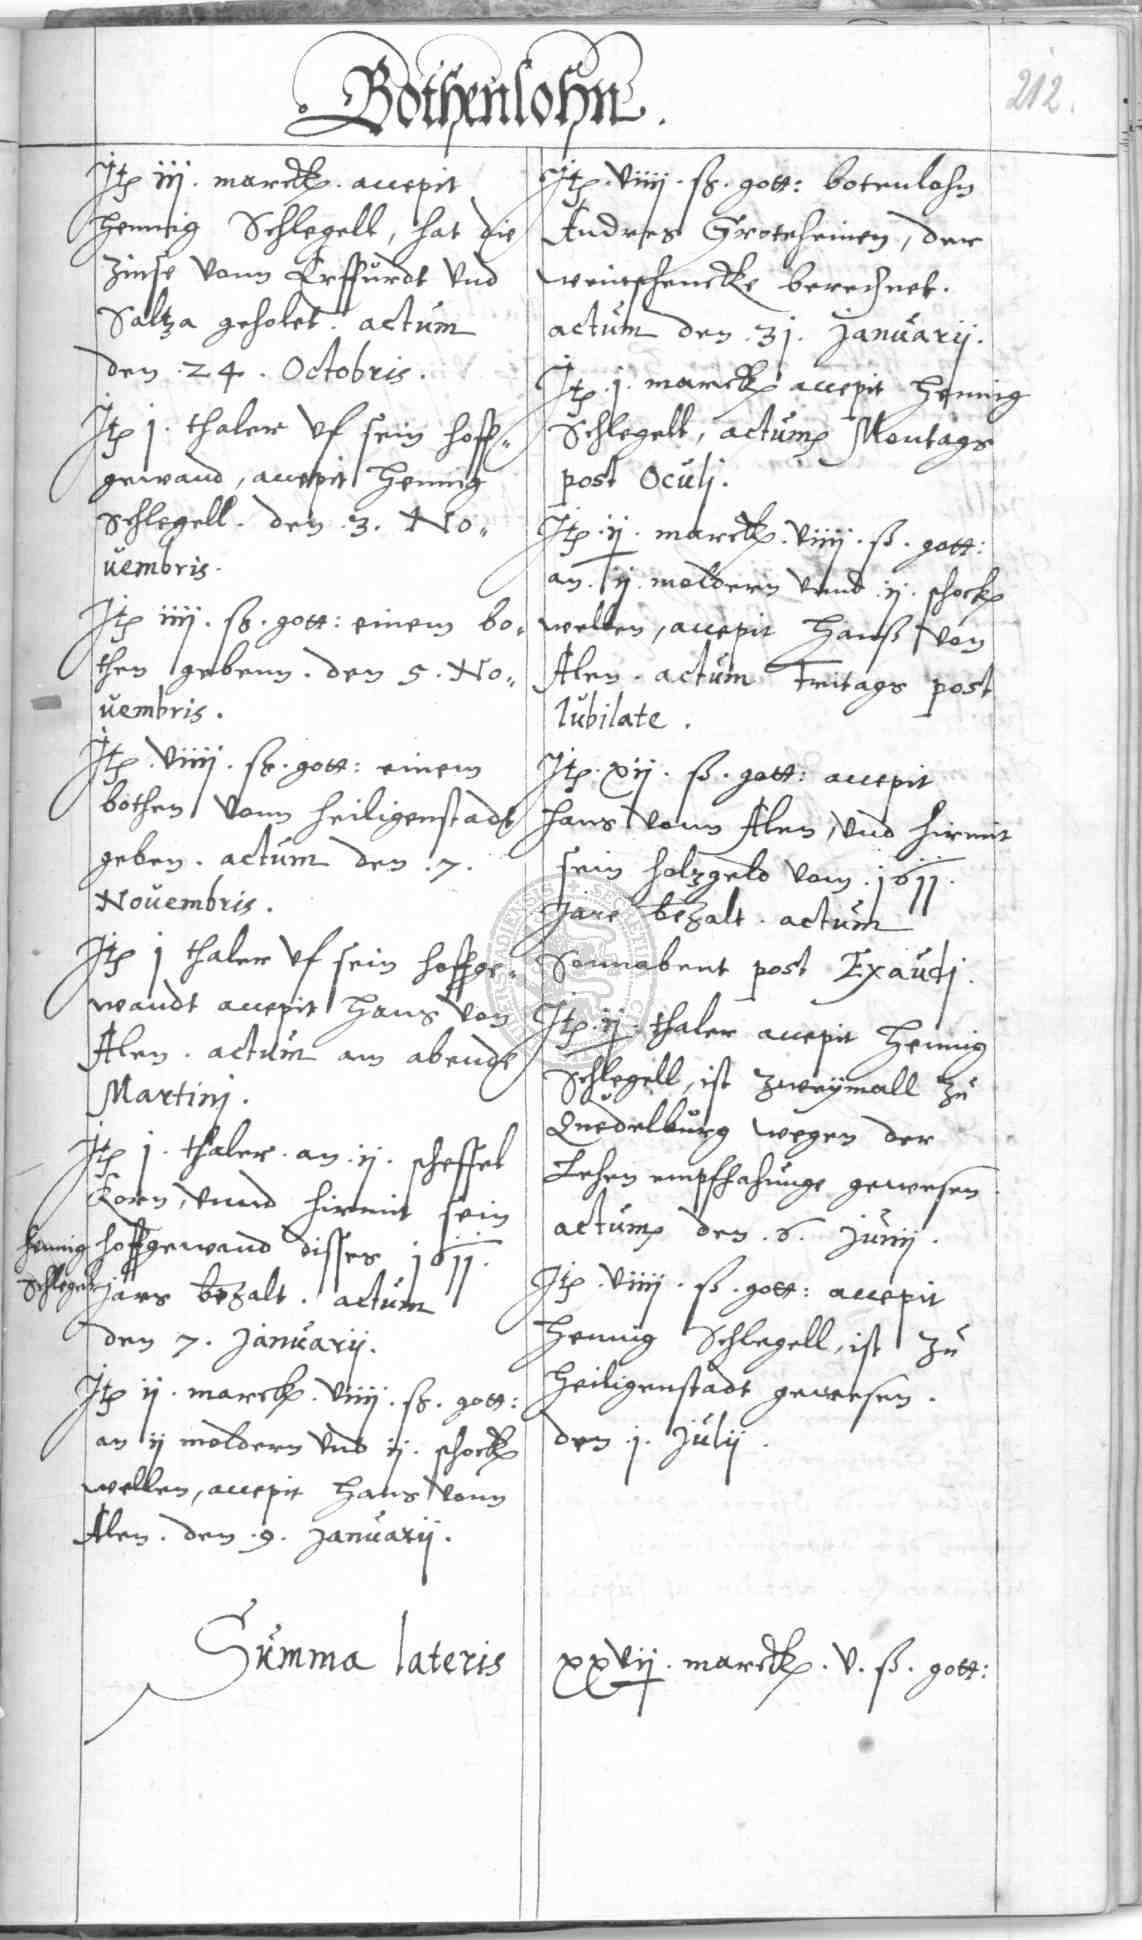 Bothenlohn.
212.
Itp iij. marck. accepit
Hennig Schlegell, hat die
Zinse vonn Erffurdt vnd
Saltza geholet. actum
den .24. Octobris.
Itp j. thaler vf sein hoff-
gewand, accepit Hennig
Schlegell. den .3. No-
uembris.
Itp iiij. ß. gott: einem bo-
then gebenn. den 5. No-
uembris.
Itp .viiij. ß. gott: einem
bothen vonn Heiligenstadt
geben. actum den .7.
Nouembris.
Itp j thaler vf sein hoffge-
wandt accepit Hans von
Alen. actum am abende
Martinj.
Itp j. thaler. an .ij. scheffel
Korn, vnnd hirmit sein
hoffgewand disses 1611.
jars bezalt. actum
den 7. Januarij.
Hennig
Schlegel
Itp ij. marck. viiij. ß. gott:
an ij moldern vnd ij. schock
wellen, accepit Hans vonn
Alen. den .9. Januarij.
Itp. viiij. ß. gott: botenlohn
Andres Groteheinen, der
weinschencke berechnet.
actum den .31. Januarij.
Itp .j. marck accepit Hennig
Schlegell, actum Montags
post Oculj.
Itp .ij. marck. viiij. ß. gott:
an .ij. moldern vnnd .ij. schock
wellen, accepit Hanß von
Alen. actum Freitags post
Iubilate.
Itp. xij. ß. gott: accepit
Hans vonn Alen, vnd hirmit
sein holzgeld vom .1611.
Jare bezalt. actum
Sonnabent post Exaudj.
Itp .ij. thaler accepit Hennig
Schlegell, ist zweymall zu
Quedelburg wegen der
Lehen empfhahunge gewesen.
actum den .6. Junij.
Itp .viiij. ß. gott: accepit
Hennig Schlegell, ist zu
Heiligenstadt gewesen.
den .j. Julij.
Summa lateris xxvij. marck. v. ß. gott: